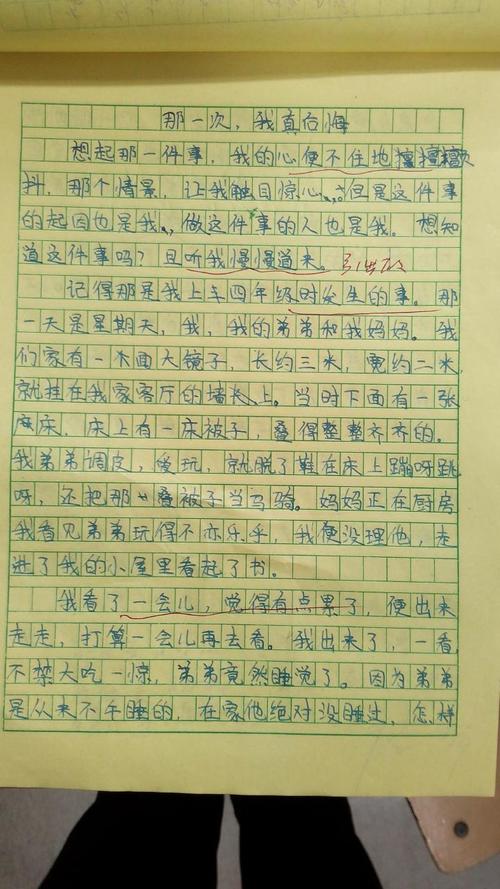 那一次，我真后悔
想起那一件事，我的心便不住地
抖，那个情景，让我触目惊心。但是这件事
的起因也是我，做这件事的人也是我。想知
道这件事吗？且听我慢慢道来。
记得那是我上年四年级时发生的事。那
一天是星期天，我，我的弟弟和我妈妈。我
们家有一木面大镜子，长约三米，宽约二米，
就挂在我家客厅的墙上。当时下面有一张
床，床上有一床被子，叠得整整齐齐的。
我弟弟调皮，爱玩，就脱了鞋在床上蹦呀跳
呀，还把那叠被子当马骑。妈妈正在厨房
我看见弟弟玩得不亦乐乎，我便没理他，走
进了我的小屋里看起了书。
我看了一会儿，觉得有点累了，便出来
走走，打算一会儿再去看。我出来了，一看，
不禁大吃一惊，弟弟竟然睡觉了。因为弟弟
是从来不午睡的，在家他绝对没睡过，怎样